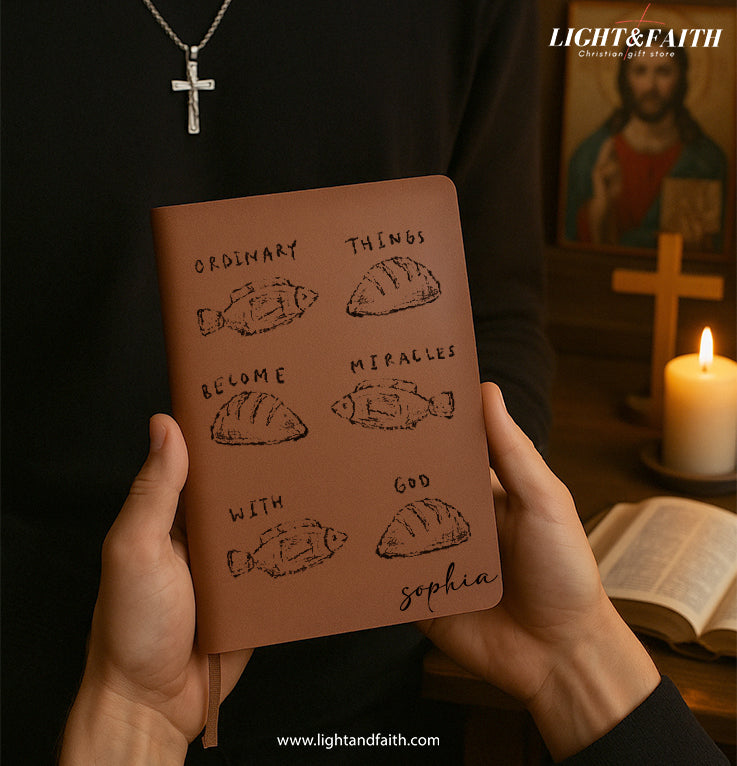 LIGHT&FAITH
Christian gift store
ORDINARY THINGS
BECOME MIRACLES
WITH GOD
sophia
www.lightandfaith.com